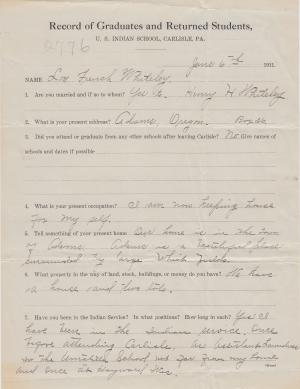 Record of Graduates and Returned Students,
U. S. INDIAN SCHOOL, CARLISLE, PA.
2776
June 6th 1911.
NAME Lou French Whiteley.
1. Are you married and if so to whom? Yes to. Henry H. Whiteley
2. What is your present address? Adams, Oregon. Box
3. Did you attend or graduate from any other schools after leaving Carlisle? No Give names
of schools and dates if possible
4. What is your present occupation? I am now keeping house
for my self.
5. Tell something of your present home Our home is in the town
of Adams. Adams is a beautiful place
surrounded by large Wheat fields.
6. What property in the way of land, stock, buildings, or money do you have? We have
a house and two lots.
7. Have you been in the Indian Service? In what positions? How long in each? Yes I
have been in the Indian service. Once
before attending Carlisle. As assistant Laundress
in the Umatilla School not far from my home
and once at Hayward Wis.